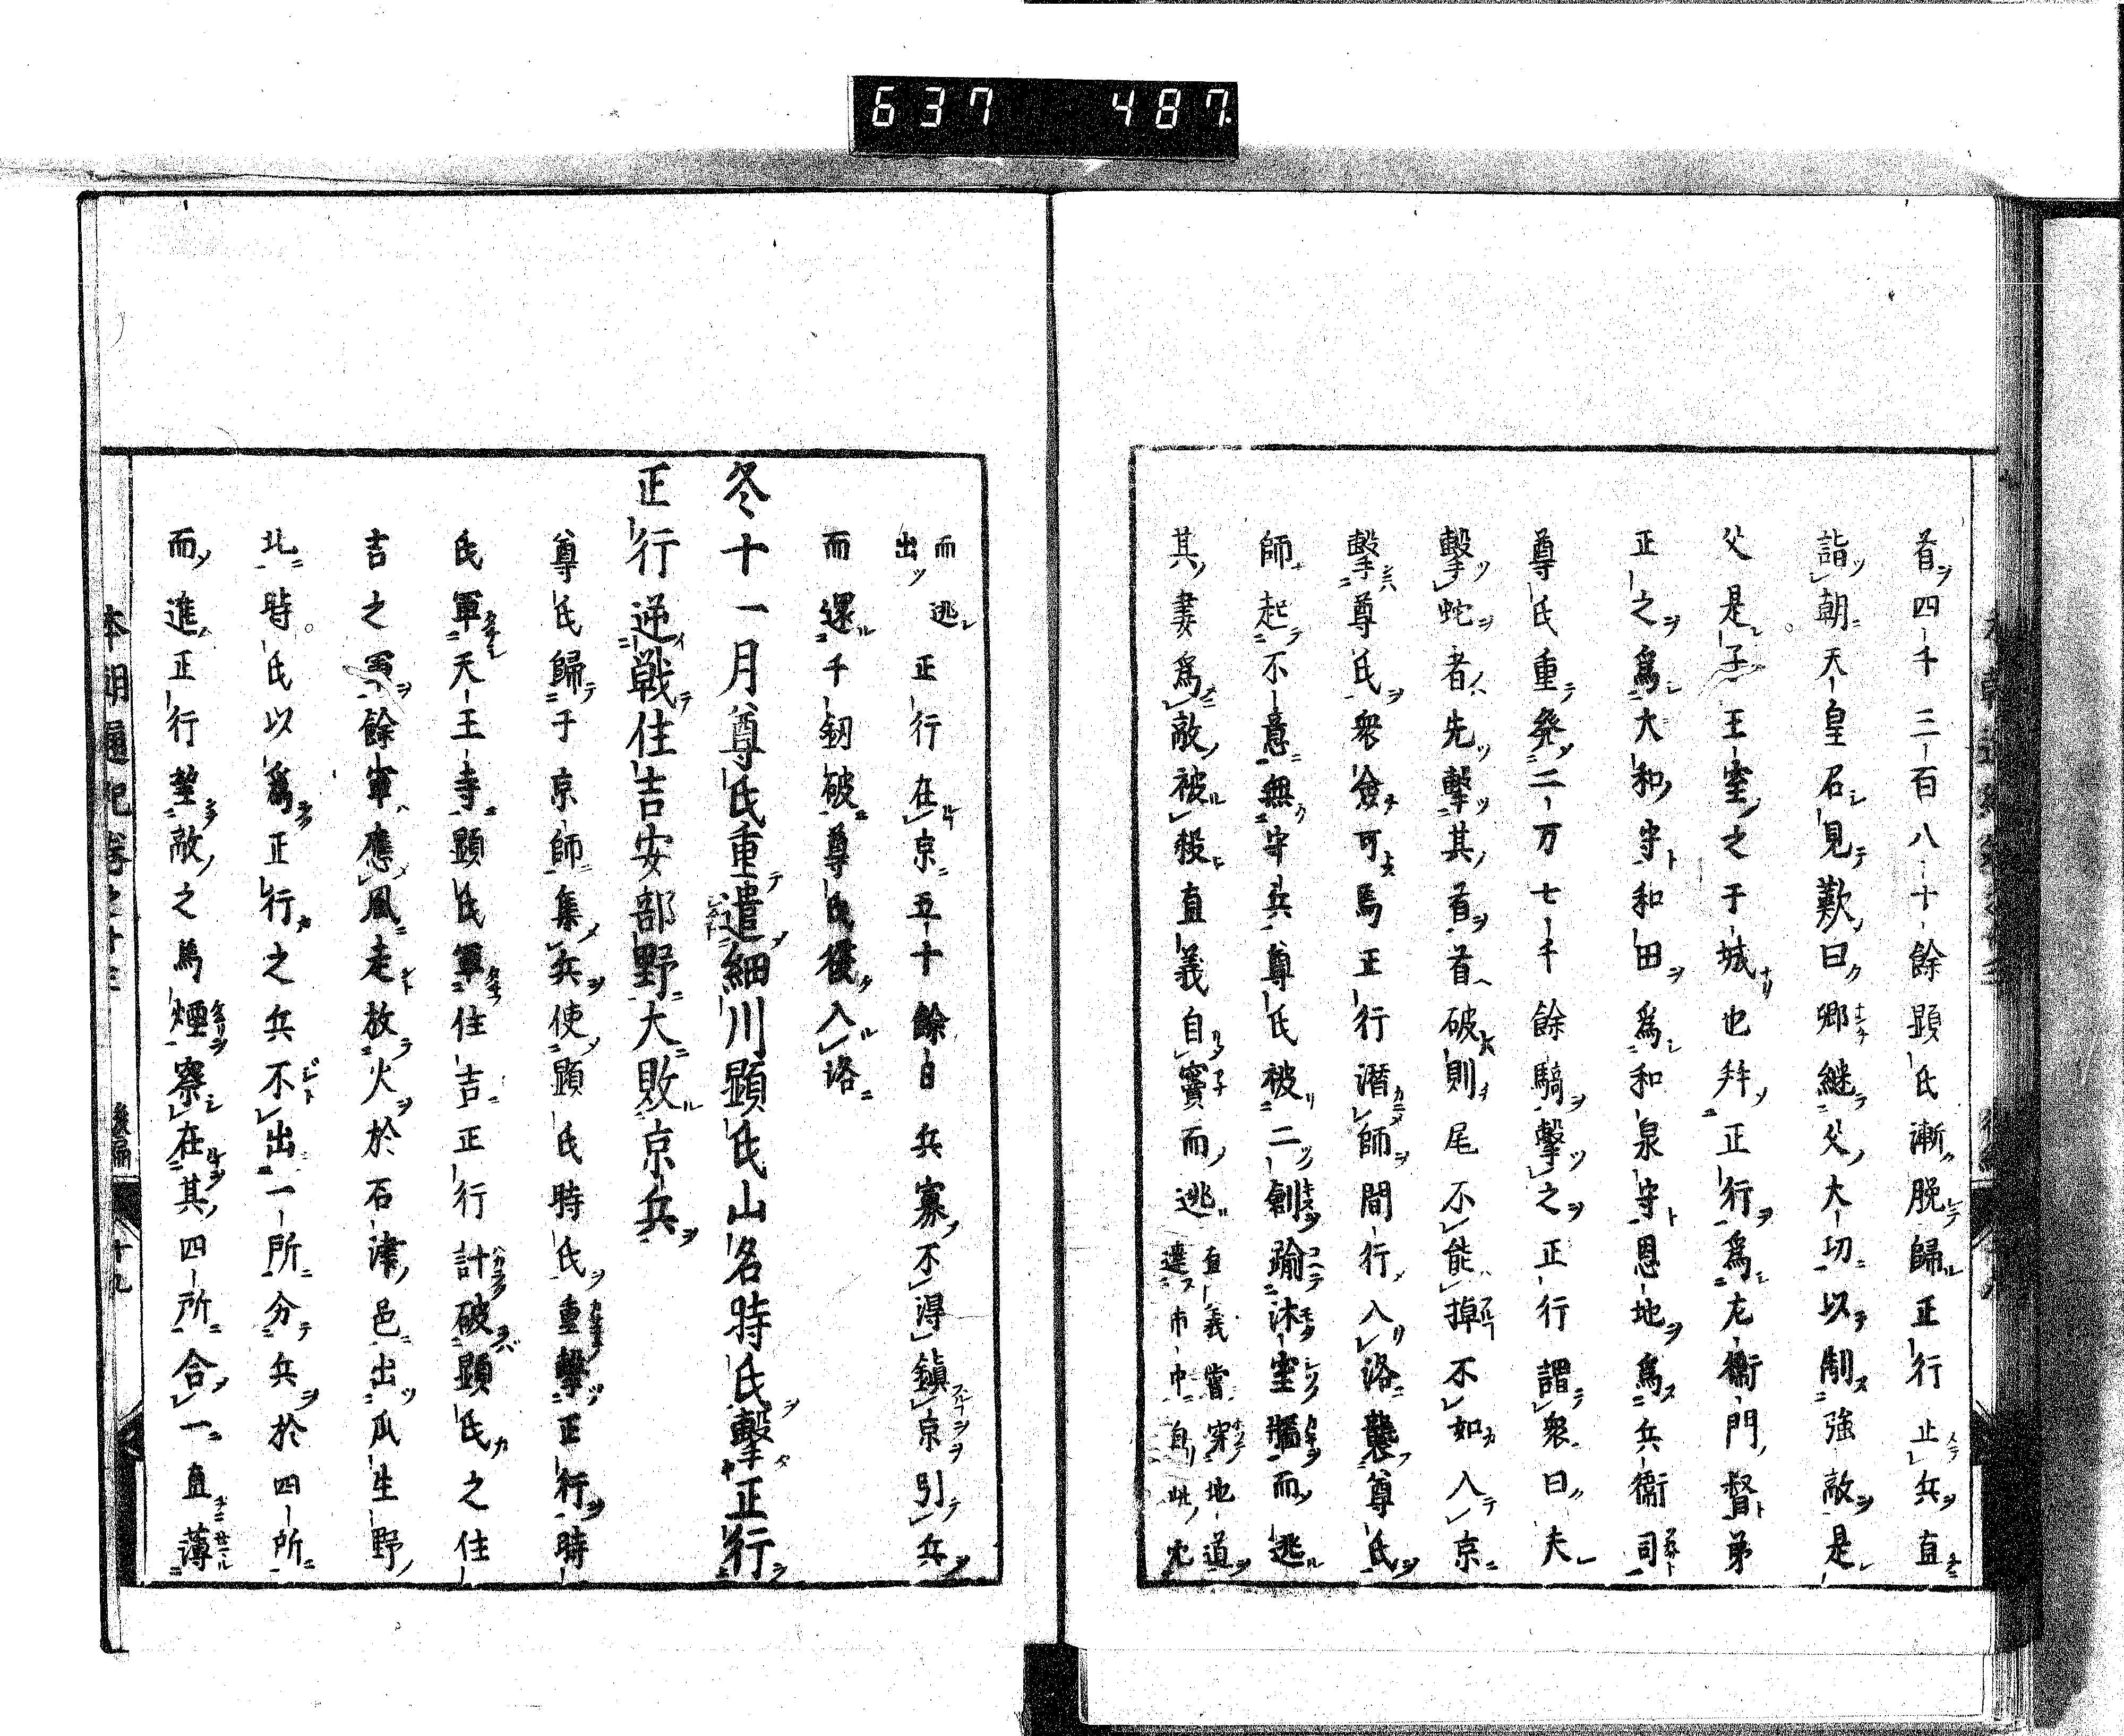 637 487
首四千三百八十餘顕氏漸脱歸正行止兵直
詣朝天皇召見歎曰卿継父大功以制強敵是
父是子王室之于城也幷正行爲左衞門督弟
正之爲大和守和田爲和泉守恩地爲兵衞司
尊氏重発二万七千餘騎撃之正行謂衆曰夫
撃蛇者先撃其首首破則尾不能掉不如入京
撃尊氏衆僉可焉正行潛師間行入洛襲尊氏
師起不意無守兵尊氏被二創踰沐室牖而逃
其妻爲敵被殺直義自竇而逃
直義嘗穿地道
達市中自此
而逃
出
正行在京五十餘日兵寡不得鎭京引兵
而還千釼破尊氏復入洛
冬十一月尊氏重遣細川顕氏山名時氏撃正行
正行逆戦住吉安部野大敗京兵
尊氏歸于京師集兵使顕氏時氏重撃正行時
氏軍天王寺顕氏軍住吉正行計破顕氏之住
吉之軍餘軍應風走放火於石津邑出瓜生野
北時氏以爲正行之兵不出一所分兵於四所
而進正行望敵之馬煙察在其四所合一直薄
本朝通紀卷之十三 後編 十九